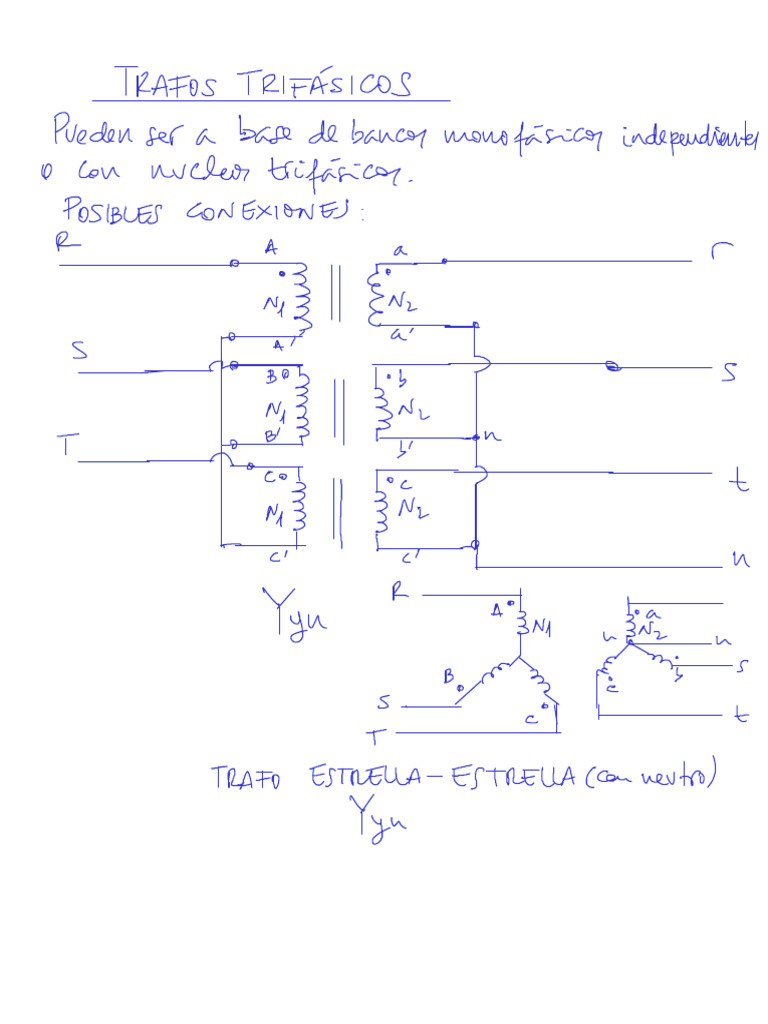 TRAFOS TRIFÁSICOS
Pueden ser a base de bancos monofásicos independientes
o con nucleos trifásicos.
POSIBLES CONEXIONES:
R A a r
N1 N2
A' a'
S B b s
N1 N2
B' b' n
T C c t
N1 N2
C' c' n
Yyn
R A N1 a N2
n n
B b s
S C c
T t
TRAFO ESTRELLA-ESTRELLA (con neutro)
Yyn